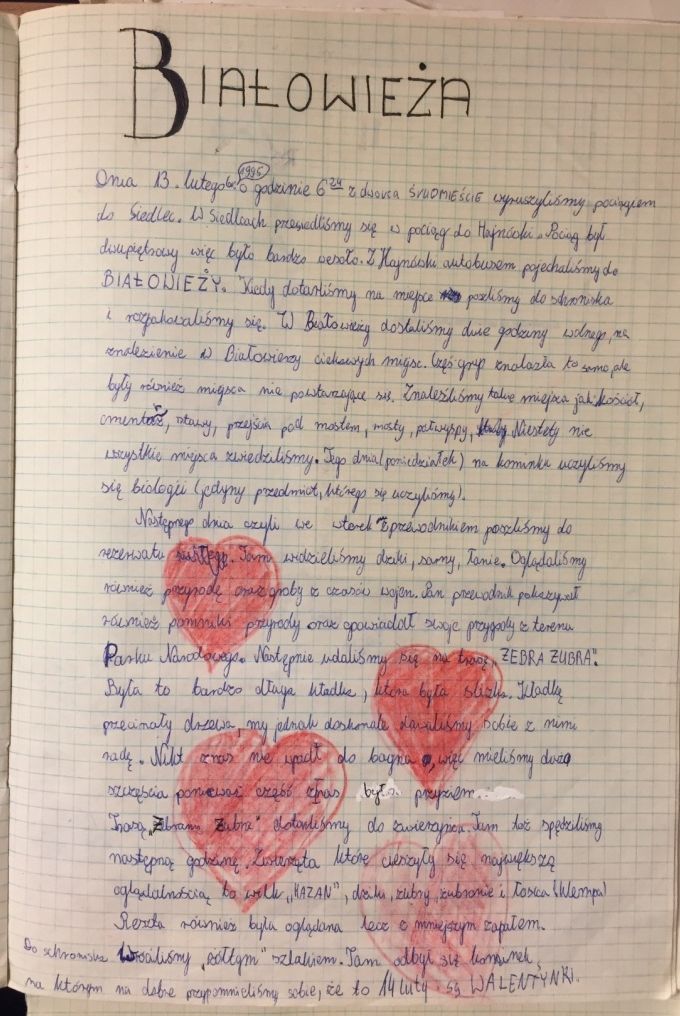 BIAŁOWIEŻA
1995
Dnia 13. lutego br. o godzinie 6 24 z dworca ŚRÓDMIEŚCIE wyruszyliśmy pociągiem
do Siedlec. W Siedlcach przesiedliśmy się w pociąg do Hajnówki. Pociąg był
dwupiętrowy więc było bardzo wesoło. Z Hajnówki autobusem pojechaliśmy do
BIAŁOWIEŻY. Kiedy dotarliśmy na miejsce poszliśmy do schroniska
i rozpakowaliśmy się. W Białowieży dostaliśmy dwie godziny wolnego, na
znalezienie w Białowieży ciekawych miejsc. Część grup znalazła to samo, ale
były również miejsca nie powtarzające się. Znaleźliśmy takie miejsca jak: kościół,
cmentarz, stawy, przejścia pod mostem, mosty, półwyspy, Niestety nie
wszystkie miejsca zwiedziliśmy. Tego dnia (poniedziałek) na kominku uczyliśmy
się biologii (jedyny przedmiot, którego się uczyliśmy).
Następnego dnia czyli we wtorek z przewodnikiem poszliśmy do
rezerwatu Tam widzieliśmy dziki, sarny, łanie. Oglądaliśmy
również przyrodę oraz groby z czasów wojen. Pan przewodnik pokazywał
również pomniki przyrody oraz opowiadał swoje przygody z terenu
Parku Narodowego. Następnie udaliśmy się na trasę „ŻEBRA ŻUBRA".
Była to bardzo długa kładka, która była śliska. Kładkę
przecinały drzewa, my jednak doskonale dawaliśmy sobie z nimi
radę. Nikt z nas nie wpadł do bagna, więc mieliśmy dużo
szczęścia ponieważ część z nas była
Trasą „Żebrami Żubra" dotarliśmy do zwierzyńca. Tam też spędziliśmy
następną godzinę. Zwierzęta które cieszyły się największą
oglądalnością to wilk „KAZAN", dziki, żubry, żubronie i łosica (Klempa)
Reszta również była oglądana lecz z mniejszym zapałem.
Do schroniska Wróciliśmy „żółtym" szlakiem. Tam odbył się kominek,
na którym na dobre przypomnieliśmy sobie, że to 14 luty - są WALENTYNKI.